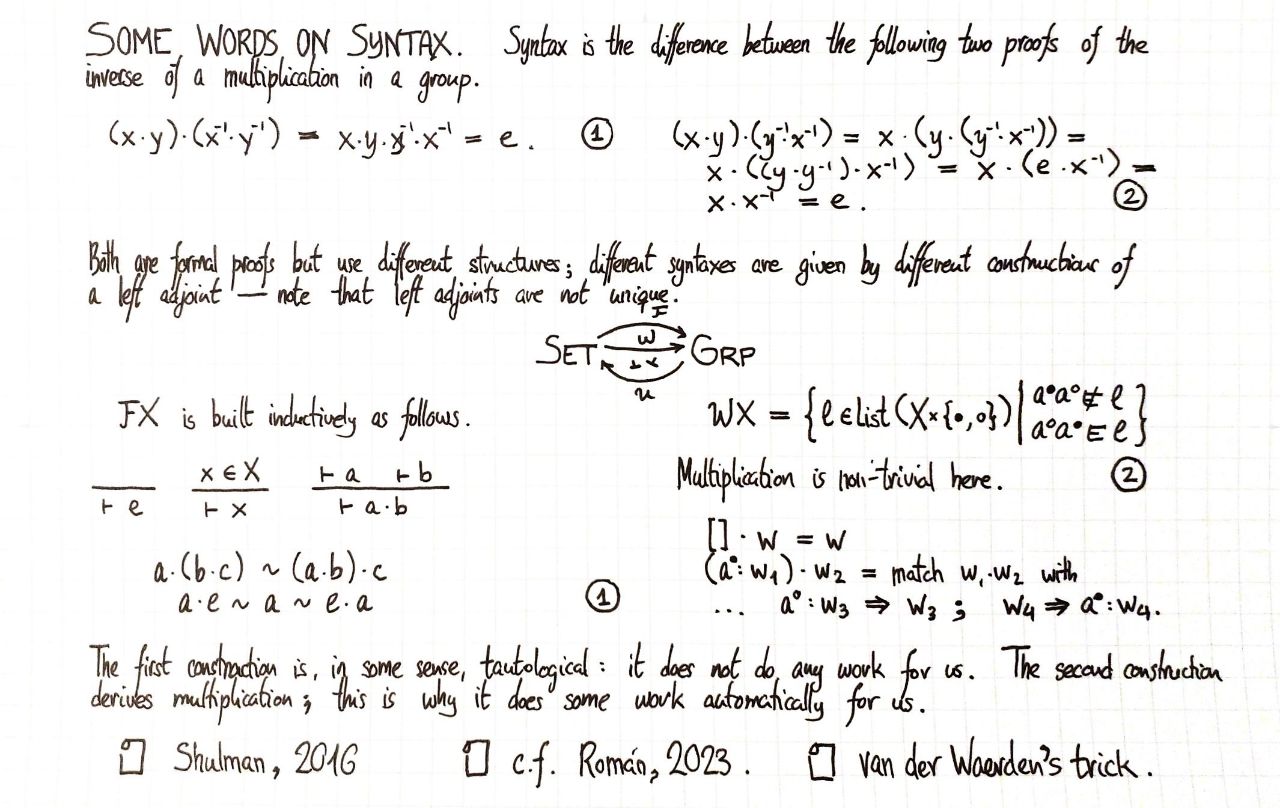 SOME WORDS ON SYNTAX. Syntax is the difference between the following two proofs of the
inverse of a multiplication in a group.
(x·y)·(x⁻¹·y⁻¹) = x·y·y⁻¹·x⁻¹ = e. ①
(x·y)·(y⁻¹·x⁻¹) = x·(y·(y⁻¹·x⁻¹)) =
x·((y·y⁻¹)·x⁻¹) = x·(e·x⁻¹) =
x·x⁻¹ = e. ②
Both are formal proofs but use different structures; different syntaxes are given by different constructions of
a left adjoint — note that left adjoints are not unique.
F
W
SET ⊥ ⊥ GRP
U
FX is built inductively as follows.
x ∈ X ⊢ a ⊢ b
⊢ e ⊢ x ⊢ a·b
a·(b·c) ~ (a·b)·c
a·e ~ a ~ e·a ①
WX = {ℓ ∈ List(X×{•,∘}) | a•a∘ ∉ ℓ
a∘a• ∈ ℓ}
Multiplication is non-trivial here. ②
[]·w = w
(a•:w₁)·w₂ = match w₁·w₂ with
... a∘:w₃ ⇒ w₃; w₄ ⇒ a•:w₄.
The first construction is, in some sense, tautological: it does not do any work for us. The second construction
derives multiplication; this is why it does some work automatically for us.
Shulman, 2016 c.f. Román, 2023. van der Waerden's trick.